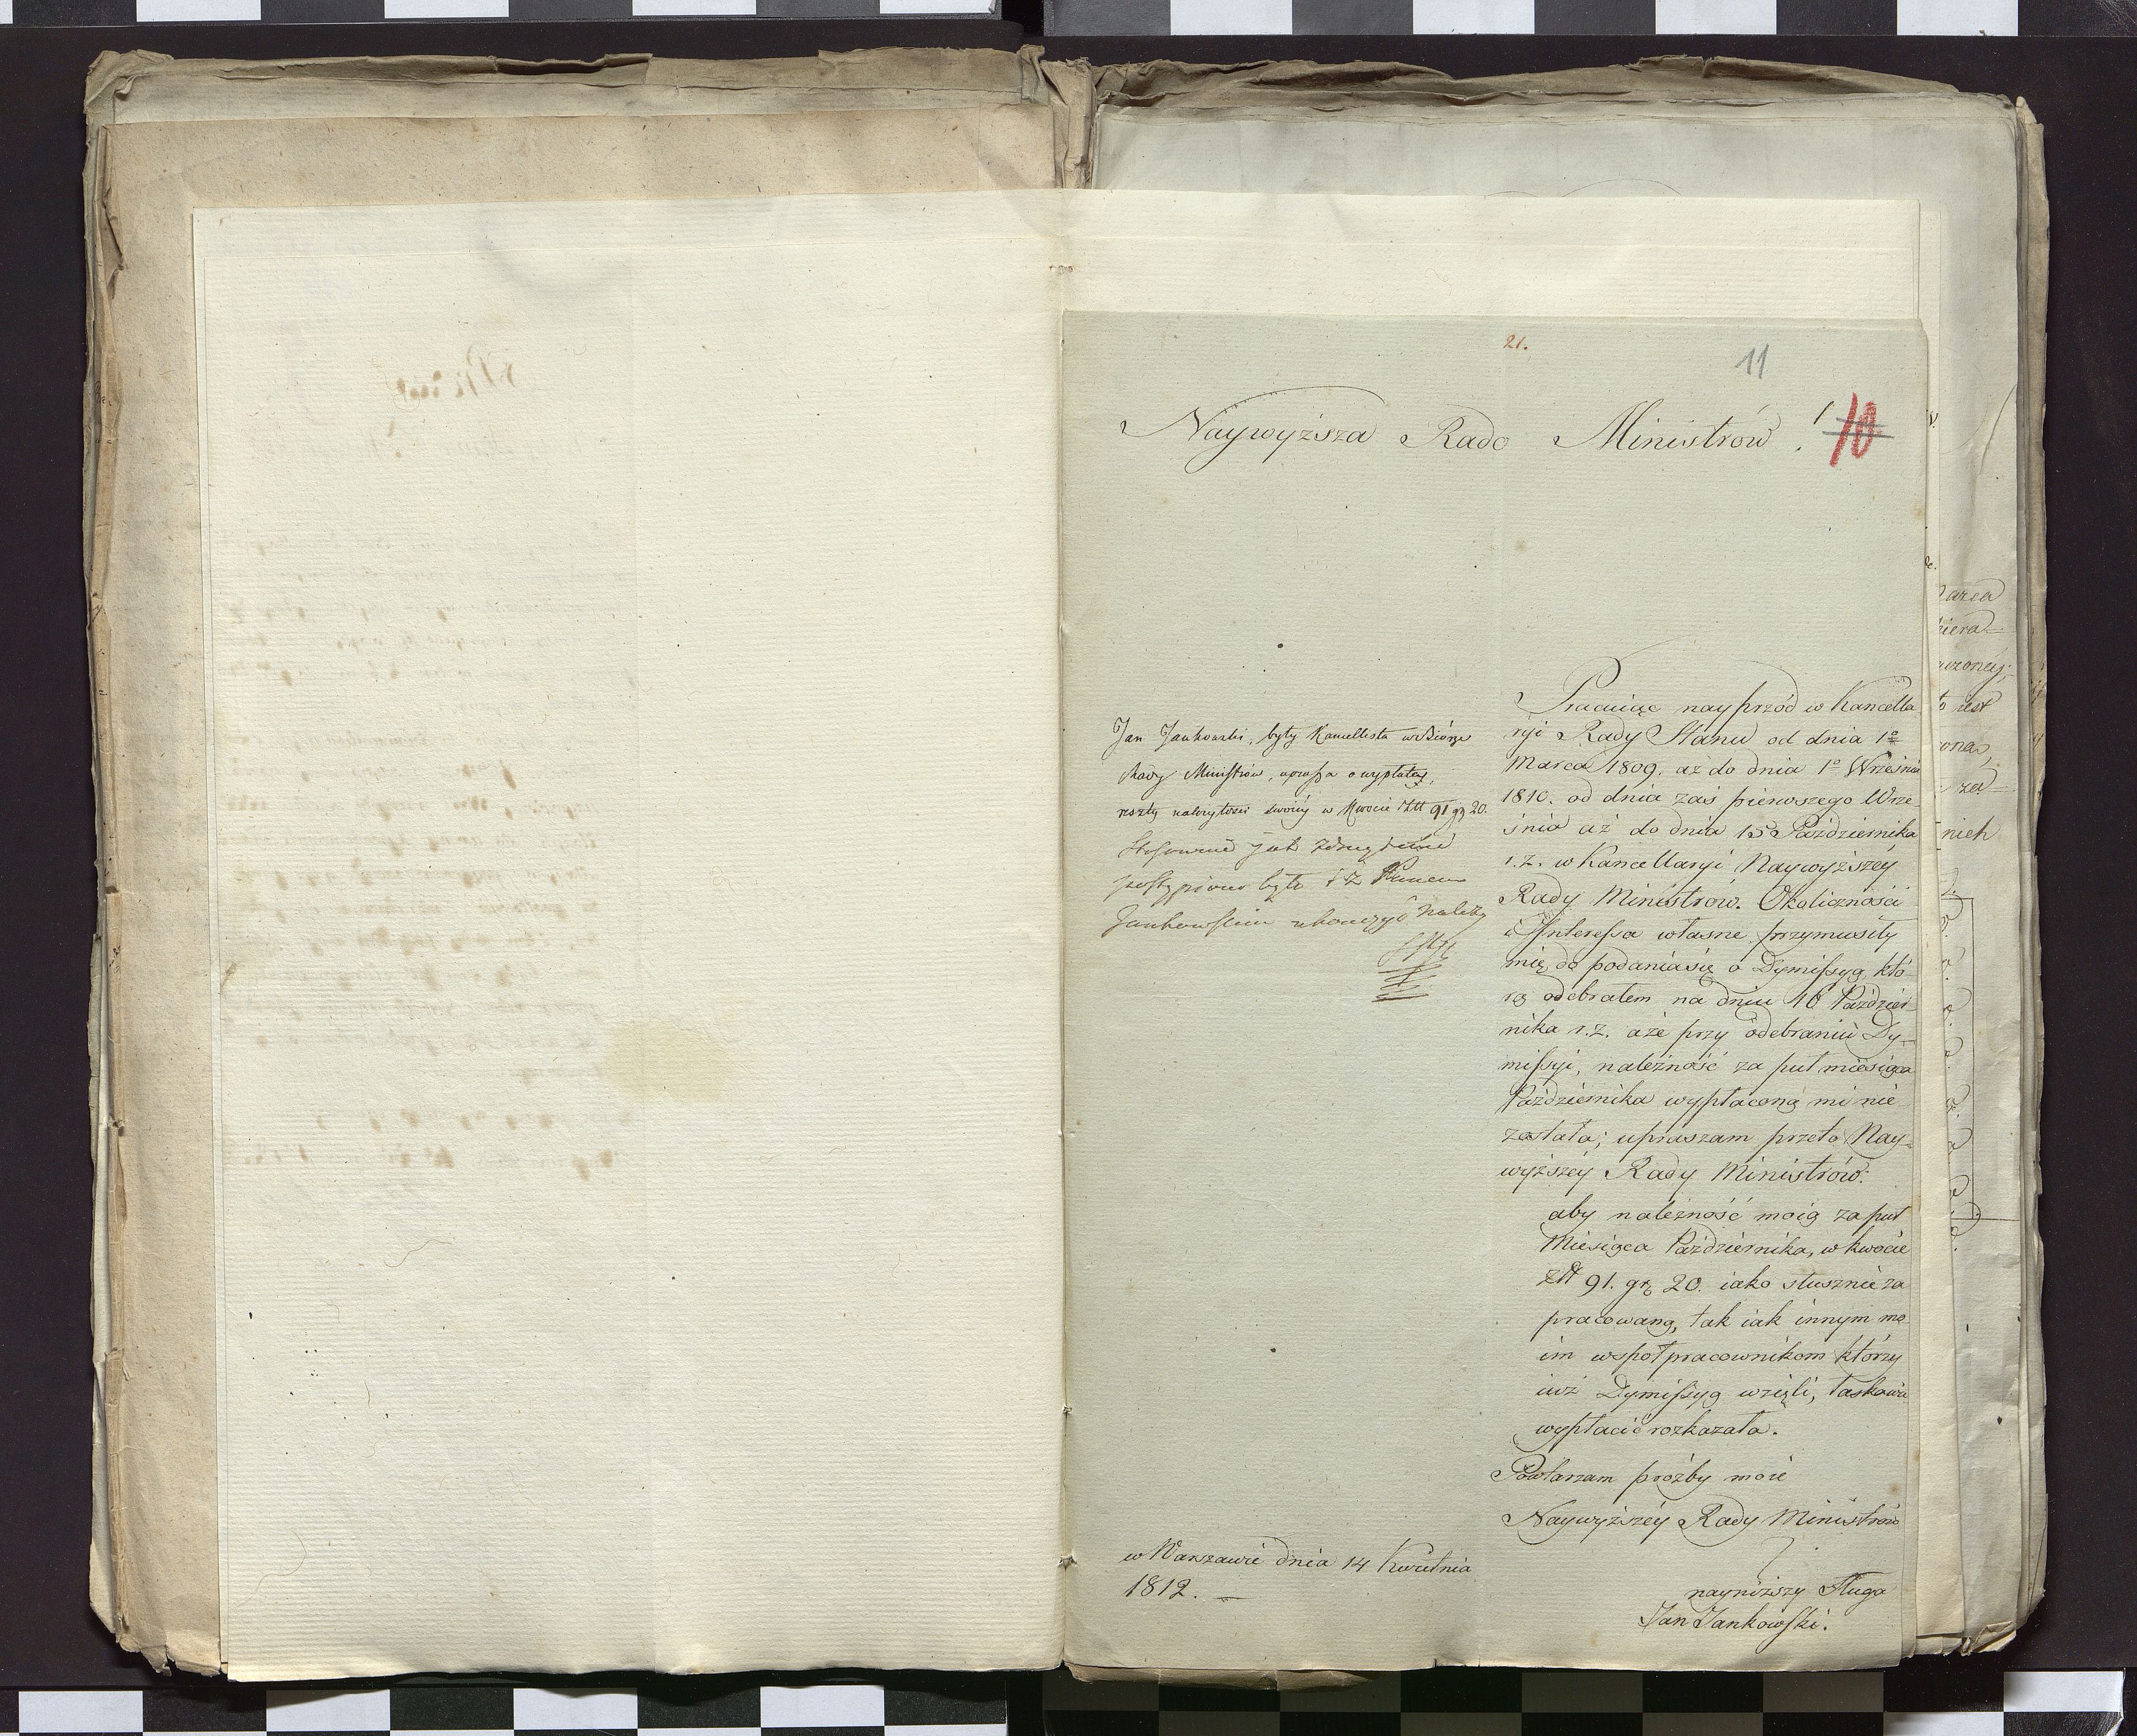 21.
11
10
Naywyższa Rado Ministrów.
Jan Jankowski, były Kancellista w Biórze
Rady Ministrów, uprasza o wypłatę
reszty należytości swoiéy w kwocie Złł 91 gr 20.
Stosownie jak z drugiemi
postąpiono było i z Panem
Jankowskim ukończyć należy
Pracuiąc nayprzód w Kancella
ryi Rady Stanu od dnia 1o
Marca 1809. aż do dnia 1o Września
1810. od dnia zaś pierwszego Wrze-
śnia aż do dnia 15 Października
r.z. w Kancellaryi Naywyższéy
Rady Ministrów. Okoliczności
i Interessa własne przymusiły
mię do podania się o Dymissyą, któ-
rą odebrałem na dniu 16 Paździer-
nika r.z. a że przy odebraniu Dy-
missyi, należność za puł miesiąca
Października wypłaconą mi nie
została; upraszam przeto Nay-
wyższéy Rady Ministrów:
aby należność moią za puł
Miesiąca Października, w kwocie
Złł 91. gr 20. iako słusznie za
pracowaną, tak iak innym mo
im współpracownikom którzy
iuż Dymissyą wzięli, łaskawie
wypłacić rozkazała.
Powtarzam prożby moie
Naywyższéy Rady Ministrów
w Warszawie dnia 14 Kwietnia
1812. —
nayniższy Sługa
Jan Jankowski.